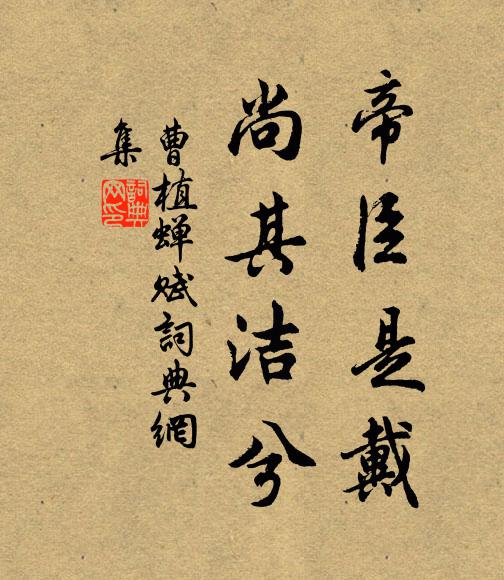 帝臣是戴
尚其洁兮
曹植蝉赋词典網
集
詞典
网印